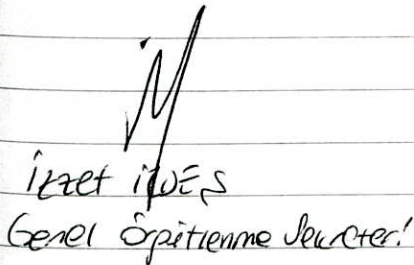 İzzet
Genel Örgütlenme Sekreteri